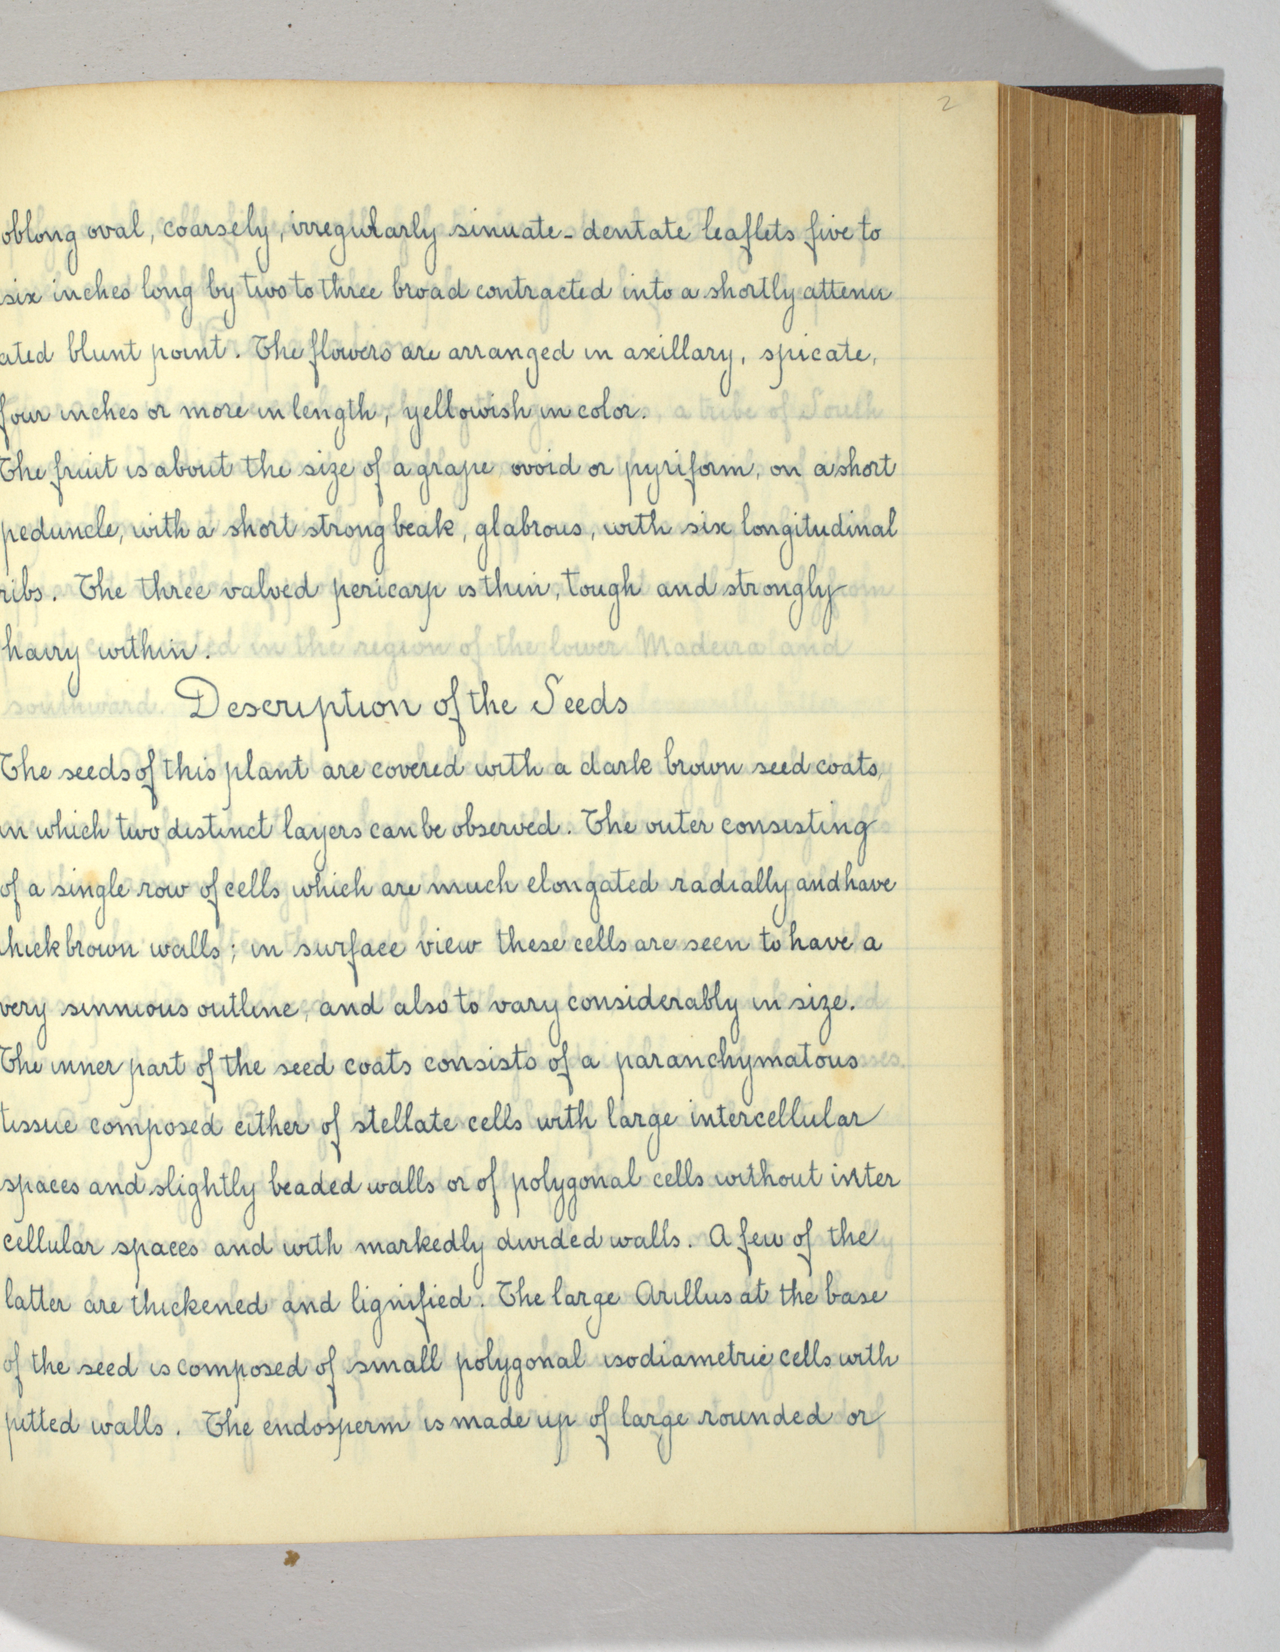 2
oblong oval, coarsely, irregularly sinuate-dentate leaflets five to
six inches long by two to three broad contracted into a shortly attenu
ated blunt point. The flowers are arranged in axillary, spicate,
four inches or more in length, yellowish in color.
The fruit is about the size of a grape ovoid or pyriform, on a short
peduncle, with a short strong beak, glabrous, with six longitudinal
ribs. The three valved pericarp is thin, tough and strongly
hairy within.
Description of the Seeds
The seeds of this plant are covered with a dark brown seed coats,
in which two distinct layers can be observed. The outer consisting
of a single row of cells which are much elongated radially and have
hick brown walls; in surface view these cells are seen to have a
very sinnious outline, and also to vary considerably in size.
The inner part of the seed coats consists of a paranchymatous
tissue composed either of stellate cells with large intercellular
spaces and slightly beaded walls or of polygonal cells without inter
cellular spaces and with markedly divided walls. A few of the
latter are thickened and lignified. The large Arillus at the base
of the seed is composed of small polygonal isodiametric cells with
pitted walls. The endosperm is made up of large rounded or